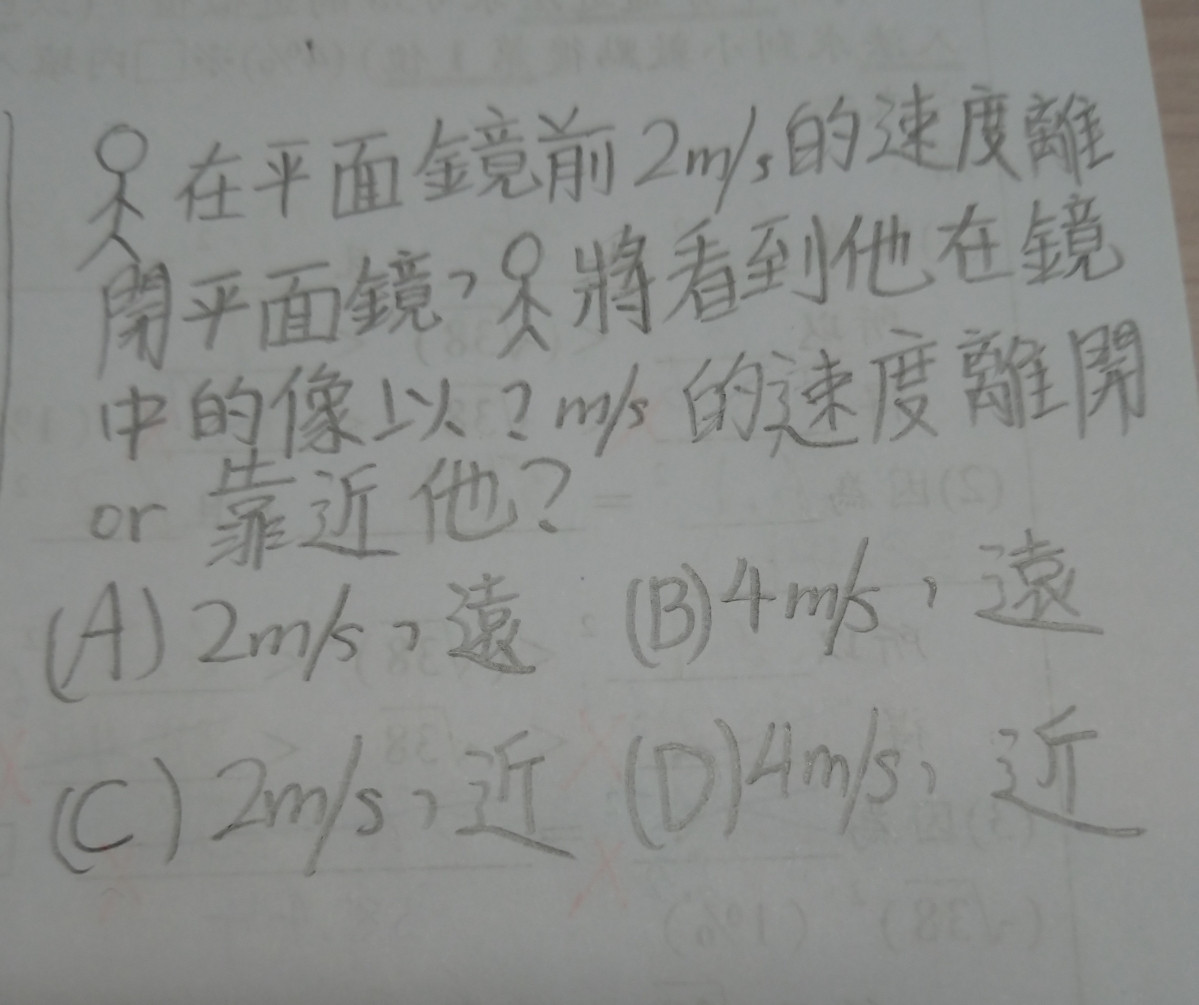 在平面鏡前2m/s的速度離
開平面鏡，將看到他在鏡
中的像以?m/s的速度離開
or 靠近他?
(A) 2m/s，遠 (B) 4m/s，遠
(C) 2m/s，近 (D) 4m/s，近
(2)因為
=
所以
√38
(3)因為
(√38)² (1%)